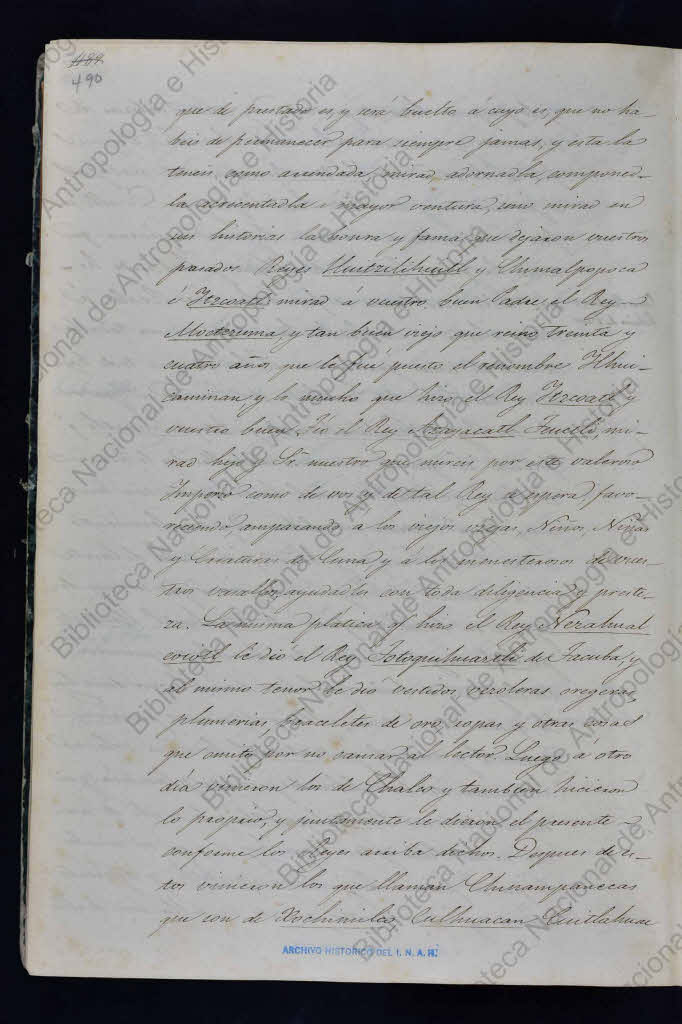 490
que de prestado es, y será buelto á cuyo es, que no ha-
beis de permanecer para siempre jamas, y esta la
teneis como arrendada, mirad, adornadla, componed-
la acrecentadla á mayor ventura, sino mirad en
sus historias la honra y fama que dejaron vuestros
pasados Reyes Huitzilihuitl y Chimalpopoca
é Itzcoatl: mirad á vuestro buen Padre el Rey
Moctezuma, y tan buen viejo que reino treinta y
cuatro años que le fué puesto el renombre Ilhui-
caminan, y lo mucho que hizo el Rey Itzcoatl y
vuestro buen Tio el Rey Axayacatl Teuctli, mi-
rad hijo y Sr. nuestro que mireis por este valeroso
Imperio como de vos y de tal Rey se espera, favo-
reciendo, amparando, a los viejos viejas, Niños, Niñas
y Criaturas de Cuna y á los menesterosos de vues-
tros vasallos, ayudadles con toda diligencia y preste-
za. La misma platica q.e hizo el Rey Nezahual
coyotl le dió el Rey Totoquihuaztli de Tacuba, y
al mismo tenor le dió vestidos, vezoleras oregeras,
plumerias, braceletes de oro, copas y otras cosas
que omito por no cansar al lector. Luego á otro
día vinieron los de Chalco y tambien hicieron
lo propio, y juntamente le dieron el presente
conforme los Reyes arriba dichos. Despues de es-
tos vinieron los que llaman Chinampanecas
que son de Xochimilco, Culhuacan Cuitlahuac
ARCHIVO HISTORICO DEL I. N. A. H.
Biblioteca Nacional de Antropología e Historia